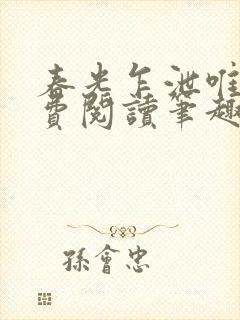 春光乍泄唯
費閱讀筆趣
孫會忠